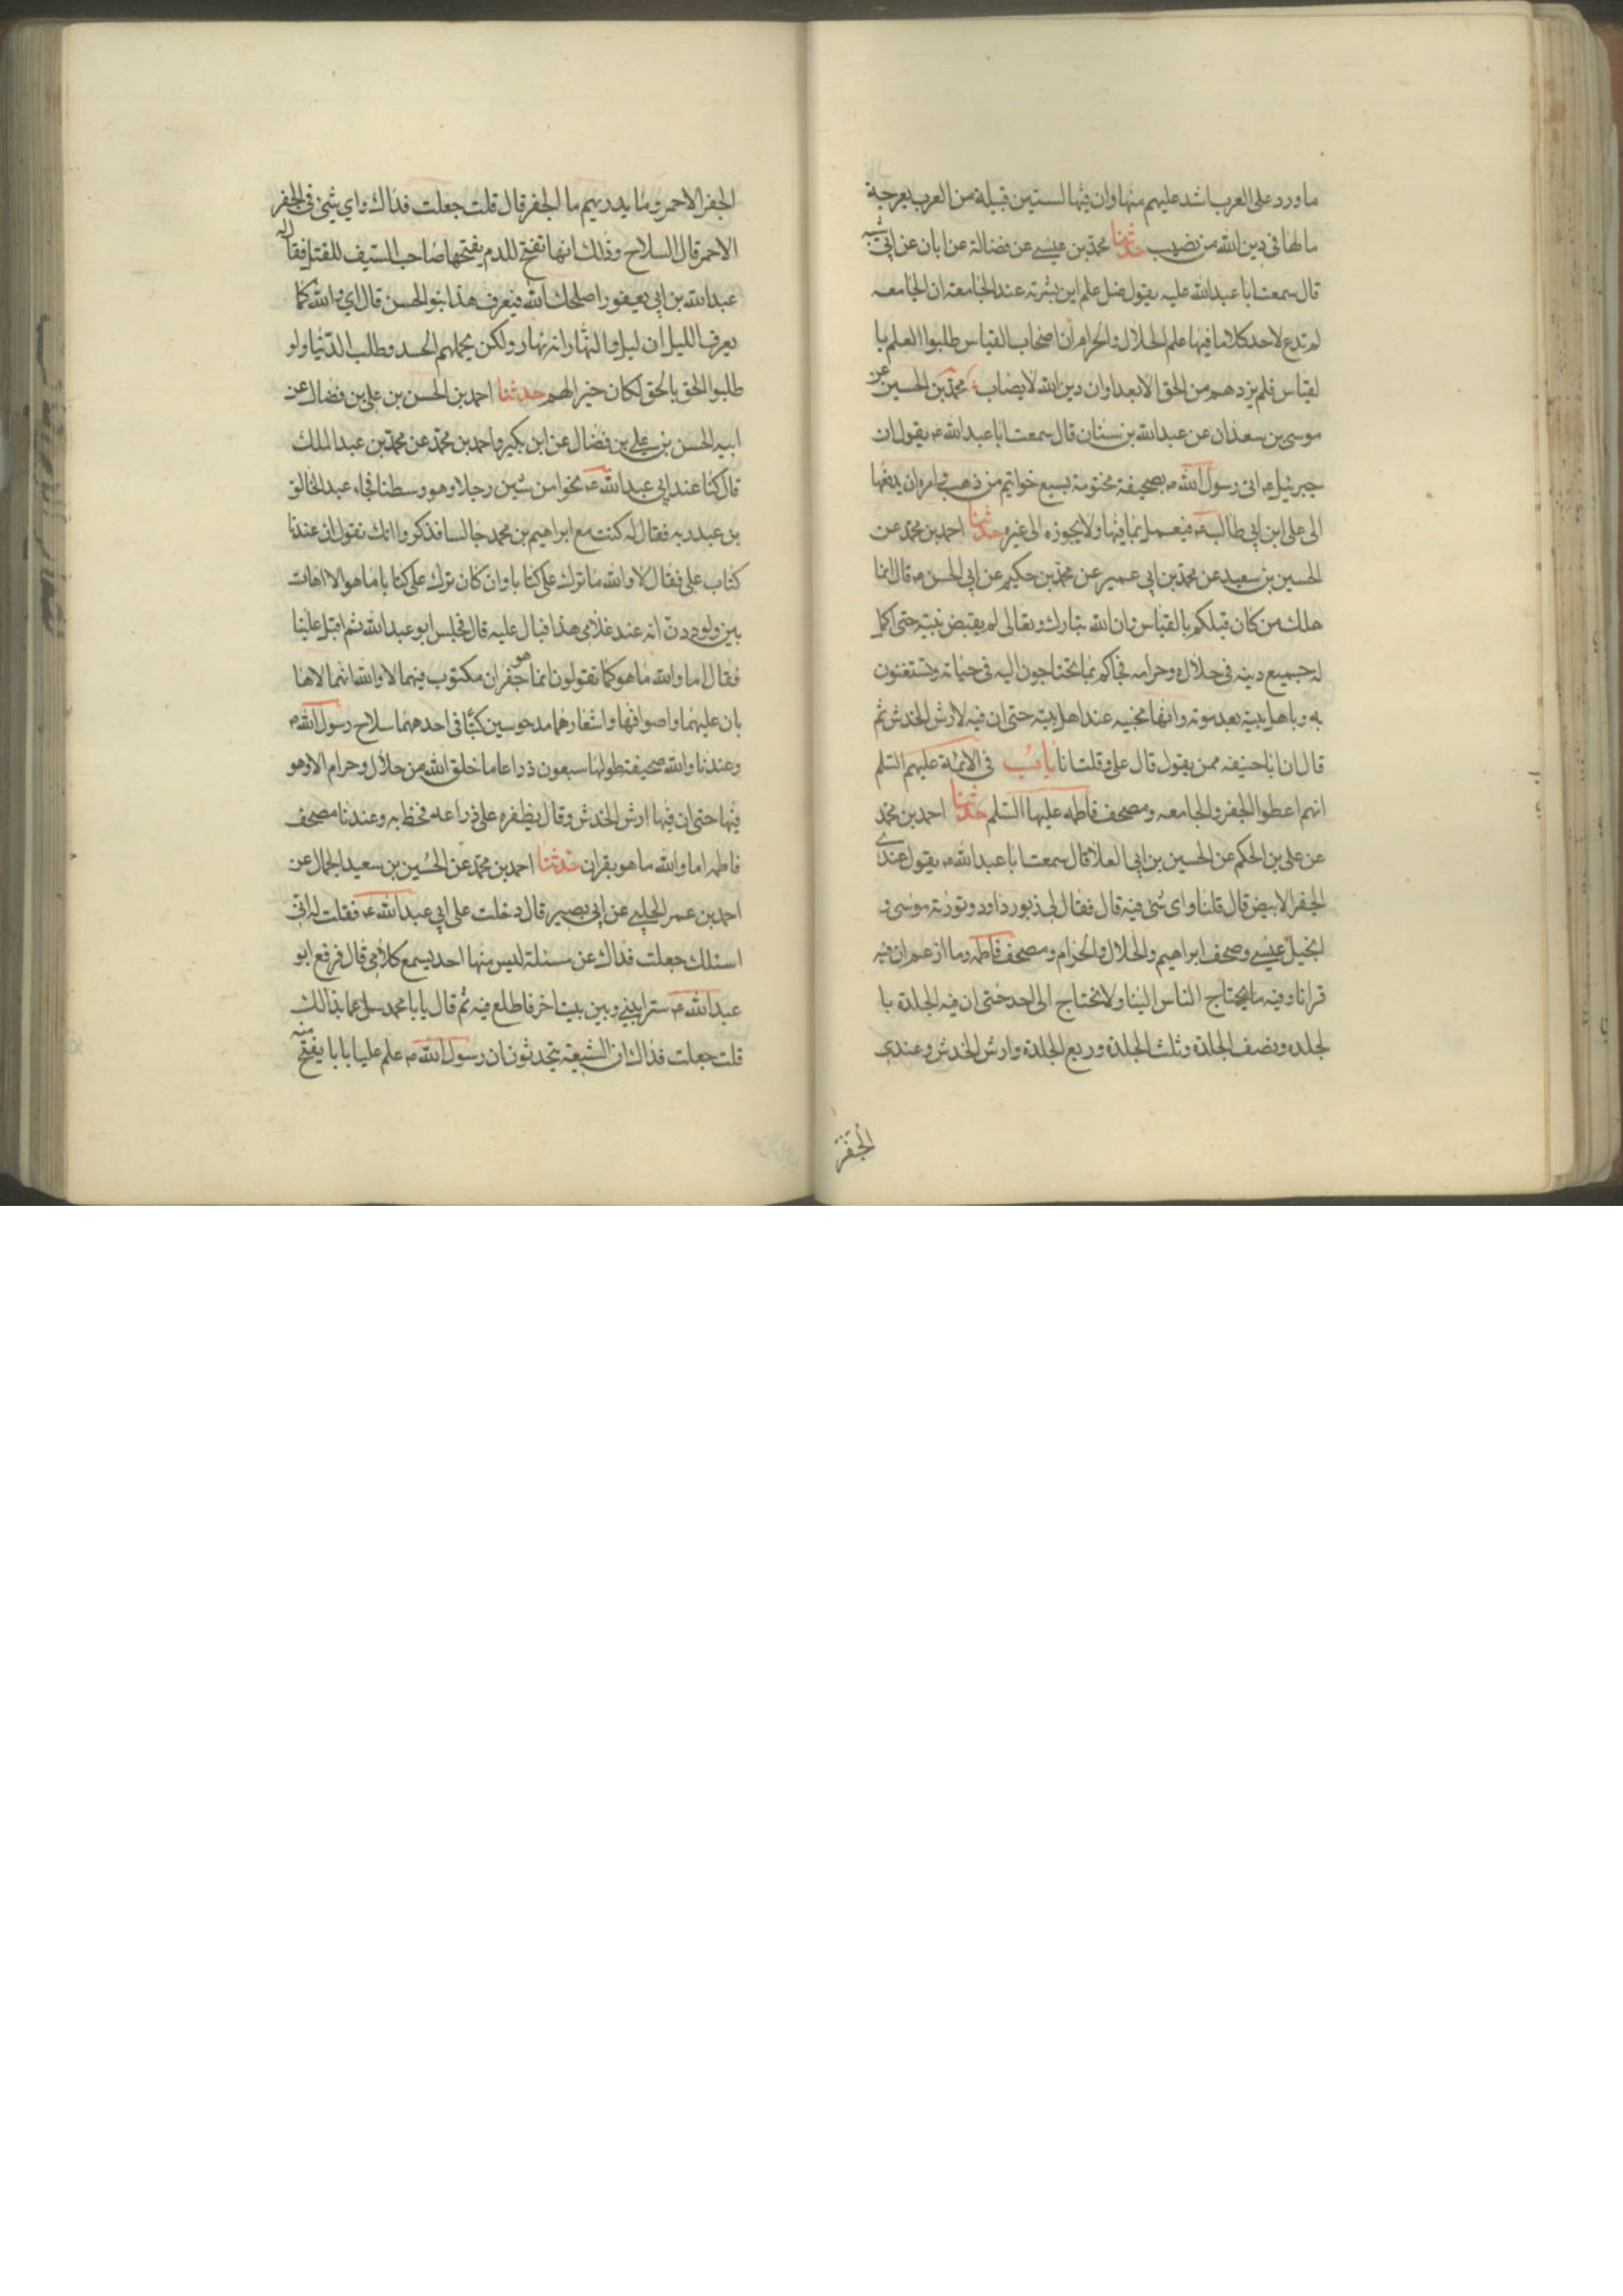 ما ورد على العرب اشد عليهم منها وان فيها لستين قبيلة من العرب بهرجة
ما لها فى دين الله من نصيب حدثنا محمد بن عيسى عن فضالة عن ابان عن ابى شيبه
قال سمعت ابا عبدالله عليه يقول ضل علم ابن بشرته عند الجامعة ان الجامعه
لم تدع لاحد كلاما فيها علم الحلال والحرام ان اصحاب القياس طلبوا العلم با
لقياس فلم يزدهم من الحق الا بعدا وان دين الله لا يصاب محمد بن الحسين عن
موسى بن سعدان عن عبدالله بن سنان قال سمعت ابا عبدالله ع يقول ان
جبرئيل ع اتى رسول الله ص بصحيفة مختومة بسبع خواتيم من ذهب وامره ان يدفعها
الى على ابن ابى طالب ع فيعمل بما فيها ولا يجوزه الى غيره حدثنا احمد بن محمد عن
الحسين بن سعيد عن محمد بن ابى عمير عن محمد بن حكيم عن ابى الحسن ع قال انما
هلك من كان قبلكم بالقياس وان الله تبارك وتعالى لم يقبض نبيه حتى اكمل
له جميع دينه فى حلاله وحرامه فجاكم بما تحتاجون اليه فى حياته وتستغنون
به وباهل بيته بعد موته وانها مخبيه عند اهل بيته حتى ان فيه لارش الخدش ثم
قال ان ابا حنيفه ممن يقول قال على وقلت انا باب فى الائمة عليهم السلم
انهم اعطوا الجفر والجامعه ومصحف فاطمه عليها السلم حدثنا احمد بن محمد
عن على بن الحكم عن الحسين بن ابى العلا قال سمعت ابا عبدالله ع يقول عندى
الجفر الابيض قال قلنا واى شئ فيه قال فقال لى زبور داود وتوزية موسى و
انجيل عيسى وصحف ابراهيم والحلال والحرام ومصحف فاطمه وما ازعم ان فيه
قرانا وفيه ما يحتاج الناس الينا ولا نحتاج الى احد حتى ان فيه الجلدة با
لجلده ونصف الجلدة وثلث الجلدة وربع الجلدة وارش الخدش وعندى
الجفر
الجفر الاحمر وما يدريهم ما الجفر قال قلت جعلت فداك واى شئ فى الجفر
الاحمر قال السلاح وذلك انها تفتح للدم يفتحها صاحب السيف للقتل فقال له
عبدالله بن ابى يعفور اصلحك الله فيعرف هذا بنو الحسن قال اى والله كما
يعرف الليل انه ليل والنهار انه نهار ولكن يحملهم الحسد وطلب الدنيا ولو
طلبوا الحق بالحق لكان خيرا لهم حدثنا احمد بن الحسن بن على بن فضال عن
ابيه الحسن بن على بن فضال عن ابن بكير واحمد بن محمد عن محمد بن عبدالملك
قال كنا عند ابى عبدالله ع نحوا من ستين رجلا وهو وسطنا فجاء عبدالخالق
بن عبد ربه فقال له كنت مع ابراهيم بن محمد جالسا فذكروا انك تقول ان عندنا
كتاب على فقال لا والله ما ترك على كتابا وان كان ترك على كتابا ما هو الا اهات
بين ولوددت انه عند غلامى هذا فبال عليه قال فجلس ابو عبدالله ثم اقبل علينا
فقال اما والله ما هو كما تقولون انما هو جفران مكتوب فيهما لا والله انهما لاها
بان عليهما واصوافها واشعارهما مدحوسين كتبا فى احدهما سلاح رسول الله ص
وعندنا والله صحيفة طولها سبعون ذراعا ما خلق الله من حلال وحرام الا وهو
فيها حتى ان فيها ارش الخدش وقال بظفره على ذراعه فخط به وعندنا مصحف
فاطمه اما والله ما هو بقران حدثنا احمد بن محمد عن الحسين بن سعيد الجمال عن
احمد بن عمر الحلبى عن ابى بصير قال دخلت على ابى عبدالله ع فقلت له انى
اسئلك جعلت فداك عن مسئلة ليس منها احد يسمع كلامى قال فرفع ابو
عبدالله ع سترا بينى وبين بيت اخر فاطلع فيه ثم قال يا با محمد سل عما بدالك
قلت جعلت فداك ان الشيعة يتحدثون ان رسول الله ص علم عليا بابا يفتح منه